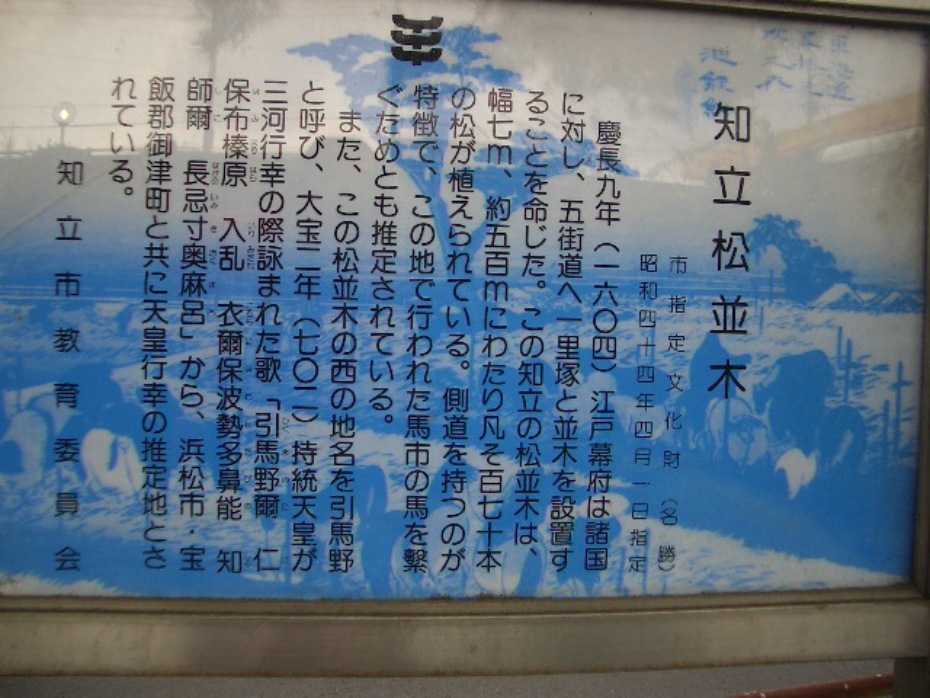 知立松並木
市指定文化財（名勝）
昭和四十四年四月一日指定
慶長九年（一六〇四）江戸幕府は諸国
に対し、五街道へ一里塚と並木を設置す
ることを命じた。この知立の松並木は、
幅七m、約五百mにわたり凡そ百七十本
の松が植えられている。側道を持つのが
特徴で、この地で行われた馬市の馬を繫
ぐためとも推定されている。
また、この松並木の西の地名を引馬野
と呼び、大宝二年（七〇二）持統天皇が
三河行幸の際詠まれた歌「引馬野爾　仁
保布榛原　入乱　衣爾保波勢多鼻能　知
師爾　長忌寸奥麻呂」から、浜松市・宝
飯郡御津町と共に天皇行幸の推定地とさ
れている。
知立市教育委員会